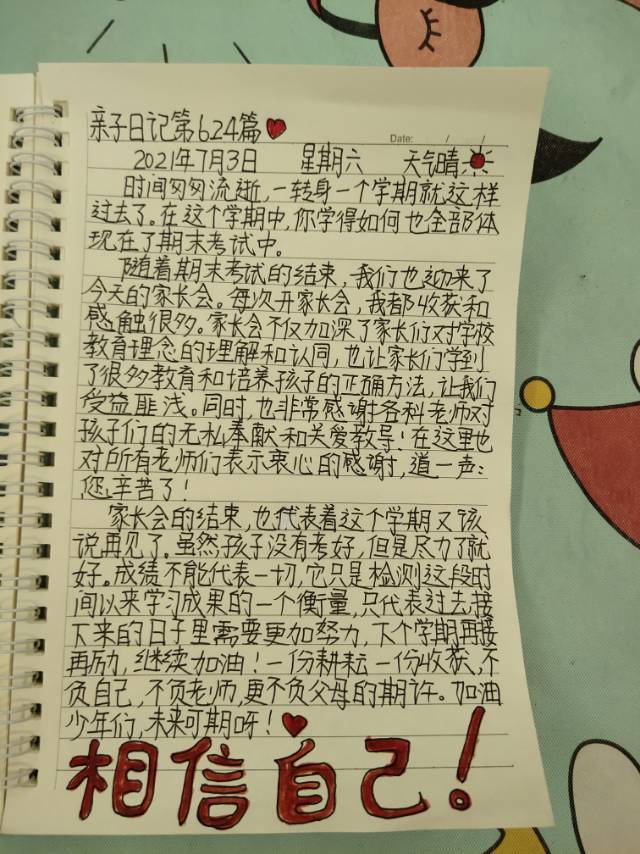 亲子日记第624篇
Date: / /
2021年7月3日 星期六 天气晴
时间匆匆流逝,一转身一个学期就这样
过去了。在这个学期中,你学得如何也全部体
现在了期末考试中。
随着期末考试的结束,我们也迎来了
今天的家长会。每次开家长会,我都收获和
感触很多。家长会不仅加深了家长们对学校
教育理念的理解和认同,也让家长们学到
了很多教育和培养孩子的正确方法,让我们
受益匪浅。同时,也非常感谢各科老师对
孩子们的无私奉献和关爱教导!在这里也
对所有老师们表示衷心的感谢,道一声:
您辛苦了!
家长会的结束,也代表着这个学期又该
说再见了。虽然孩子没有考好,但是尽力了就
好。成绩不能代表一切,它只是检测这段时
间以来学习成果的一个衡量,只代表过去,接
下来的日子里需要更加努力,下个学期再接
再励,继续加油!一份耕耘一份收获,不
负自己,不负老师,更不负父母的期许。加油
少年们,未来可期呀!
相信自己!